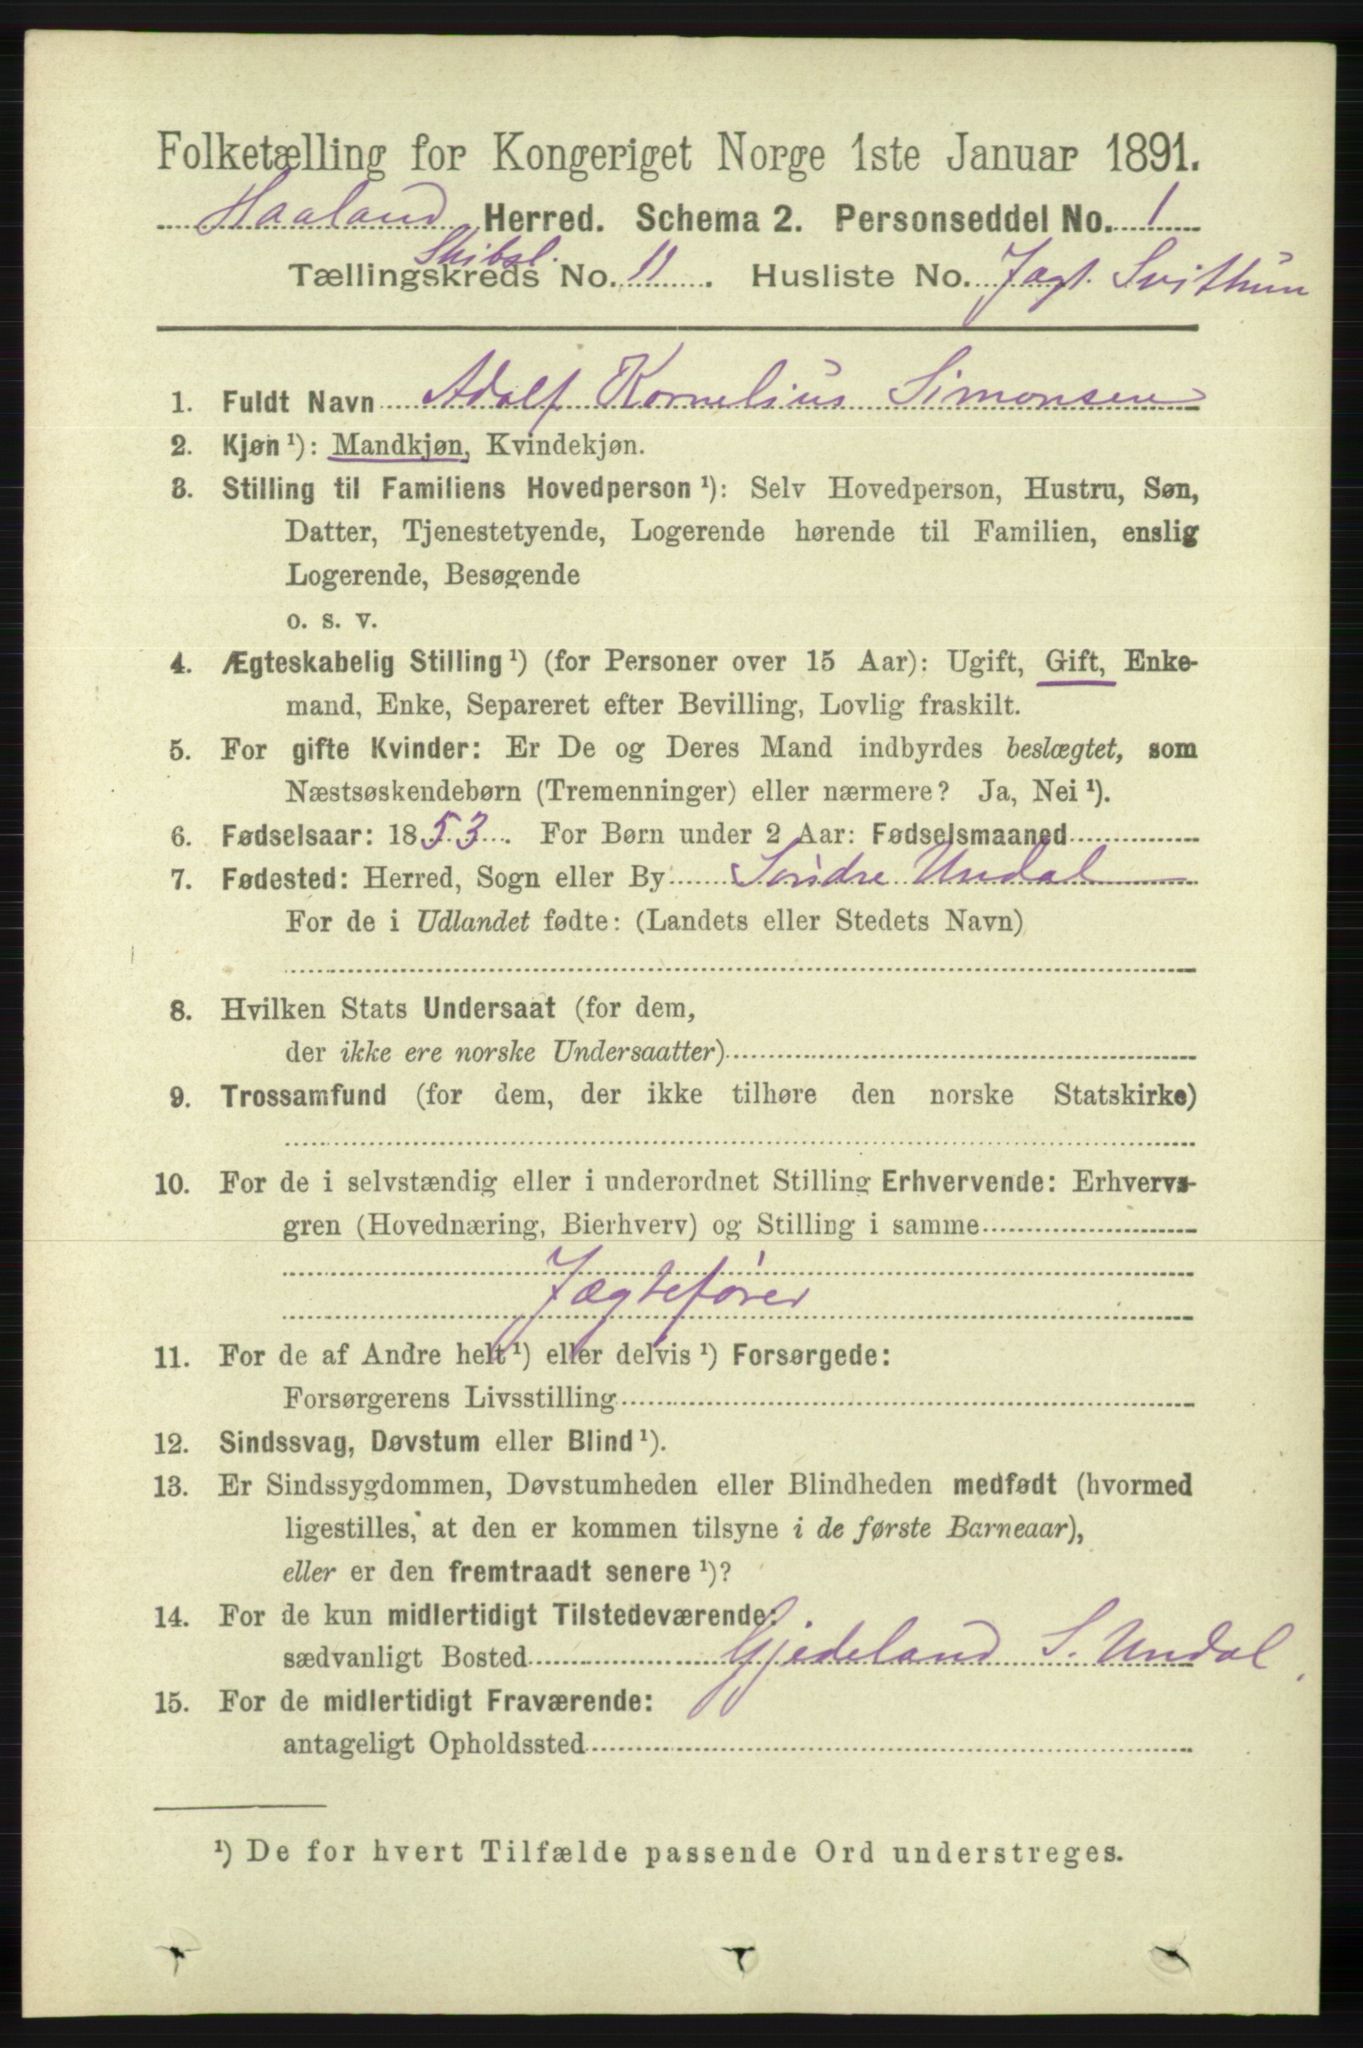 Folketælling for Kongeriget Norge 1ste Januar 1891.
Haaland Herred. Schema 2. Personseddel No. 1
Skibsl.
Tællingskreds No. 11. Husliste No. Jagt. Svithun
1. Fuldt Navn Adolf Kornelius Simonsen
2. Kjøn ¹): Mandkjøn, Kvindekjøn.
3. Stilling til Familiens Hovedperson ¹): Selv Hovedperson, Hustru, Søn,
Datter, Tjenestetyende, Logerende hørende til Familien, enslig
Logerende, Besøgende
o. s. v.
4. Ægteskabelig Stilling ¹) (for Personer over 15 Aar): Ugift, Gift, Enke-
mand, Enke, Separeret efter Bevilling, Lovlig fraskilt.
5. For gifte Kvinder: Er De og Deres Mand indbyrdes beslægtet, som
Næstsøskendebørn (Tremenninger) eller nærmere? Ja, Nei ¹).
6. Fødselsaar: 1853. For Børn under 2 Aar: Fødselsmaaned
7. Fødested: Herred, Sogn eller By Søndre Undal
For de i Udlandet fødte: (Landets eller Stedets Navn)
8. Hvilken Stats Undersaat (for dem,
der ikke ere norske Undersaatter)
9. Trossamfund (for dem, der ikke tilhøre den norske Statskirke)
10. For de i selvstændig eller i underordnet Stilling Erhvervende: Erhvervs-
gren (Hovednæring, Bierhverv) og Stilling i samme
Jægtefører
11. For de af Andre helt ¹) eller delvis ¹) Forsørgede:
Forsørgerens Livsstilling
12. Sindssvag, Døvstum eller Blind ¹).
13. Er Sindssygdommen, Døvstumheden eller Blindheden medfødt (hvormed
ligestilles, at den er kommen tilsyne i de første Barneaar),
eller er den fremtraadt senere ¹)?
14. For de kun midlertidigt Tilstedeværende:
sædvanligt Bosted Gjedeland S. Undal
15. For de midlertidigt Fraværende:
antageligt Opholdssted
¹) De for hvert Tilfælde passende Ord understreges.